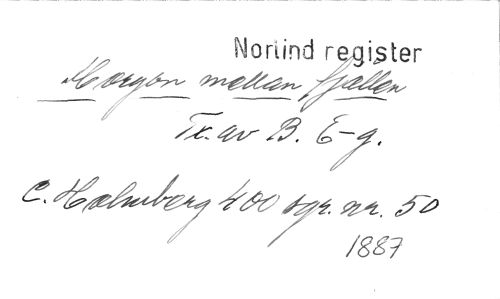 Norlind register
Morgon mellan fjällen
Tx. av B. E-g.
C. Holmberg 400 sgr. nr. 50
1887